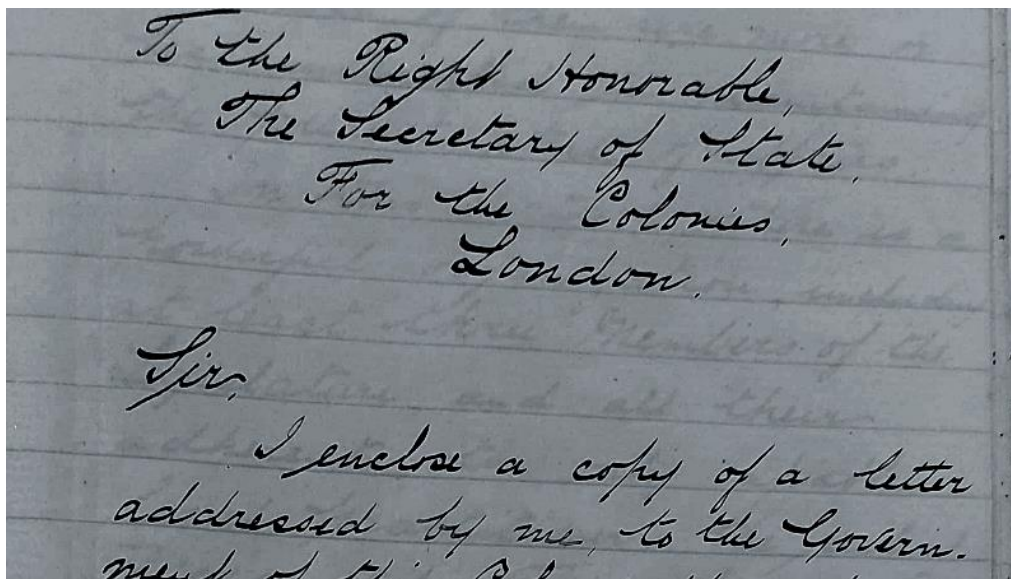 To the Right Honorable,
The Secretary of State,
For the Colonies,
London.
Sir,
I enclose a copy of a letter
addressed by me, to the Govern-
ment of this Colony